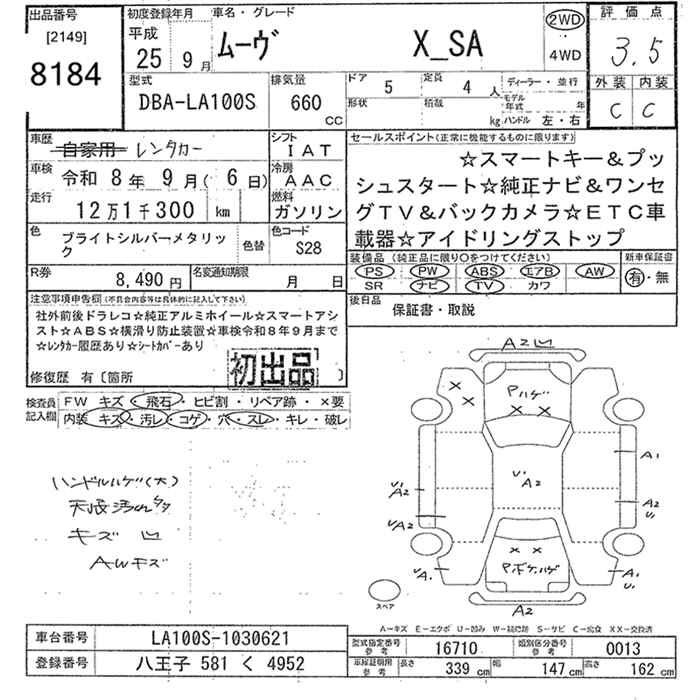 出品番号
[2149]
8184
初度登録年月
平成
25 年 9 月
車名・グレード
ムーヴ X_SA
2WD
4WD
評価点
3.5
外装 内装
C C
型式
DBA-LA100S
排気量
660 CC
ドア 5
定員 4 人
形状
積載 kg
ディーラー・並行
モデル年式 年
ハンドル 左・右
車歴
自家用 レンタカー
シフト
IAT
車検
令和 8年 9月( 6日)
冷房
AAC
走行
12万1千300 km
燃料
ガソリン
色
ブライトシルバーメタリック
色替
色コード
S28
R券
8,490円
名変通知期限
月 日
セールスポイント(正常に機能するものに限ります)
☆スマートキー&プッ
シュスタート☆純正ナビ&ワンセ
グTV&バックカメラ☆ETC車
載器☆アイドリングストップ
装備品 (純正品に限り○をつけてください)
PS PW ABS エアB AW
SR ナビ TV カワ
新車保証書
有・無
後日品
保証書・取説
注意事項申告欄(不具合内容等は具体的に記入して下さい)
社外前後ドラレコ☆純正アルミホイール☆スマートアシ
スト☆ABS☆横滑り防止装置☆車検令和8年9月まで
☆レンタカー履歴あり☆シートカバーあり
修復歴 有〔箇所 〕
初出品
検査員
記入欄
FW キズ・飛石・ヒビ割・リペア跡・×要
内装・キズ・汚レ・コゲ・穴・スレ・キレ・破レ
ハンドルハゲ(大)
天張汚れ多
キズ 凹
AWキズ
A2凹
Pハゲ
A1
U1
A2
U1
A2
A2
U1
U2
A2
U1
A1
A1
U1
Pボケ,ハゲ
A2
スペア
A-キズ E-エクボ U-凹み W-補修跡 S-サビ C-腐食 XX-交換済
車台番号
LA100S-1030621
登録番号
八王子 581 く 4952
型式指定番号
参考
16710
類別区分番号
参考
0013
車庫証明用
参考
長さ 339 cm
幅 147 cm
高さ 162 cm